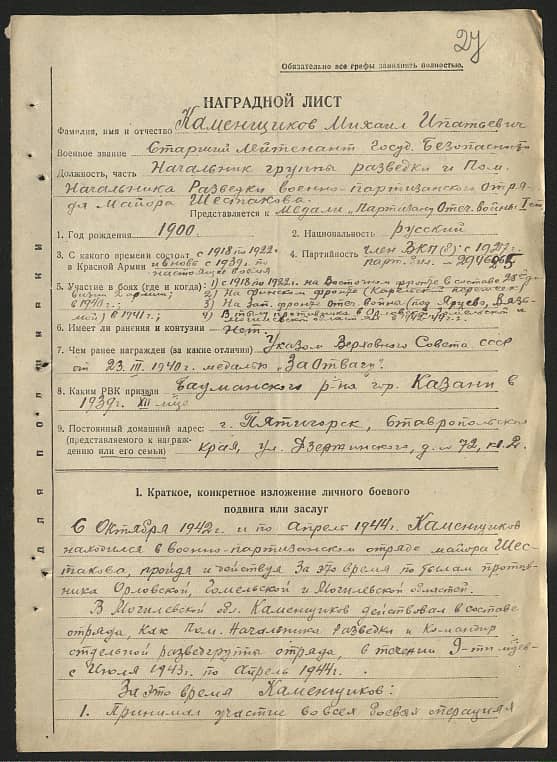 Обязательно все графы заполнять полностью.
НАГРАДНОЙ ЛИСТ
Фамилия, имя и отчество Каменщиков Михаил Ипатьевич
Военное звание Старший Лейтенант Госуд. Безопасности
Должность, часть Начальник группы разведки и Пом.
Начальника Разведки военно-партизанского отря-
да Майора Шестакова.
Представляется к Медали "Партизану Отеч. войны I ст
1. Год рождения 1900. 2. Национальность русский
3. С какого времени состоит с 1918 по 1922. 4. Партийность член ВКП(б) с 1927 г.
в Красной Армии и вновь с 1939 г. по парт. бил.
настоящее время
5. Участие в боях (где и когда): 1) с 1918 по 1922. на Восточном фронте в составе 28 ди-
визии армии; 2) На финском фронте (Карельский перешеек)
в 1940 г.; 3) На Зап. фронте Отеч. война (под Ярцево, Вязь-
мой) в 1941 г.; 4) В тылу противника в Орловской, Гомельской и
Могилевской областях в
6. Имеет ли ранения и контузии — Нет.
7. Чем ранее награжден (за какие отличия) Указом Верховного Совета СССР
от 23. III. 1940 г. медалью "За Отвагу".
8. Каким РВК призван Бауманского р-на гор. Казани в
1939 г. XII м-це
9. Постоянный домашний адрес: г. Пятигорск, Ставропольского
(представляемого к награж- края, ул. Дзержинского, д. № 72, кв. 2.
дению или его семьи)
для полиивки
I. Краткое, конкретное изложение личного боевого
подвига или заслуг
С Октября 1942 г. и по Апрель 1944 г. Каменщиков
находился в военно-партизанском отряде майора Шес-
такова, пройдя и действуя за это время по тылам против-
ника Орловской, Гомельской и Могилевской областей.
В Могилевской обл. Каменщиков действовал в составе
отряда, как Пом. Начальника разведки и Командир
отдельной разведгруппы отряда, в течении 9-ти м-цев-
с Июля 1943 г. по Апрель 1944 г.
За это время Каменщиков:
1. Принимал участие во всех боевых операциях